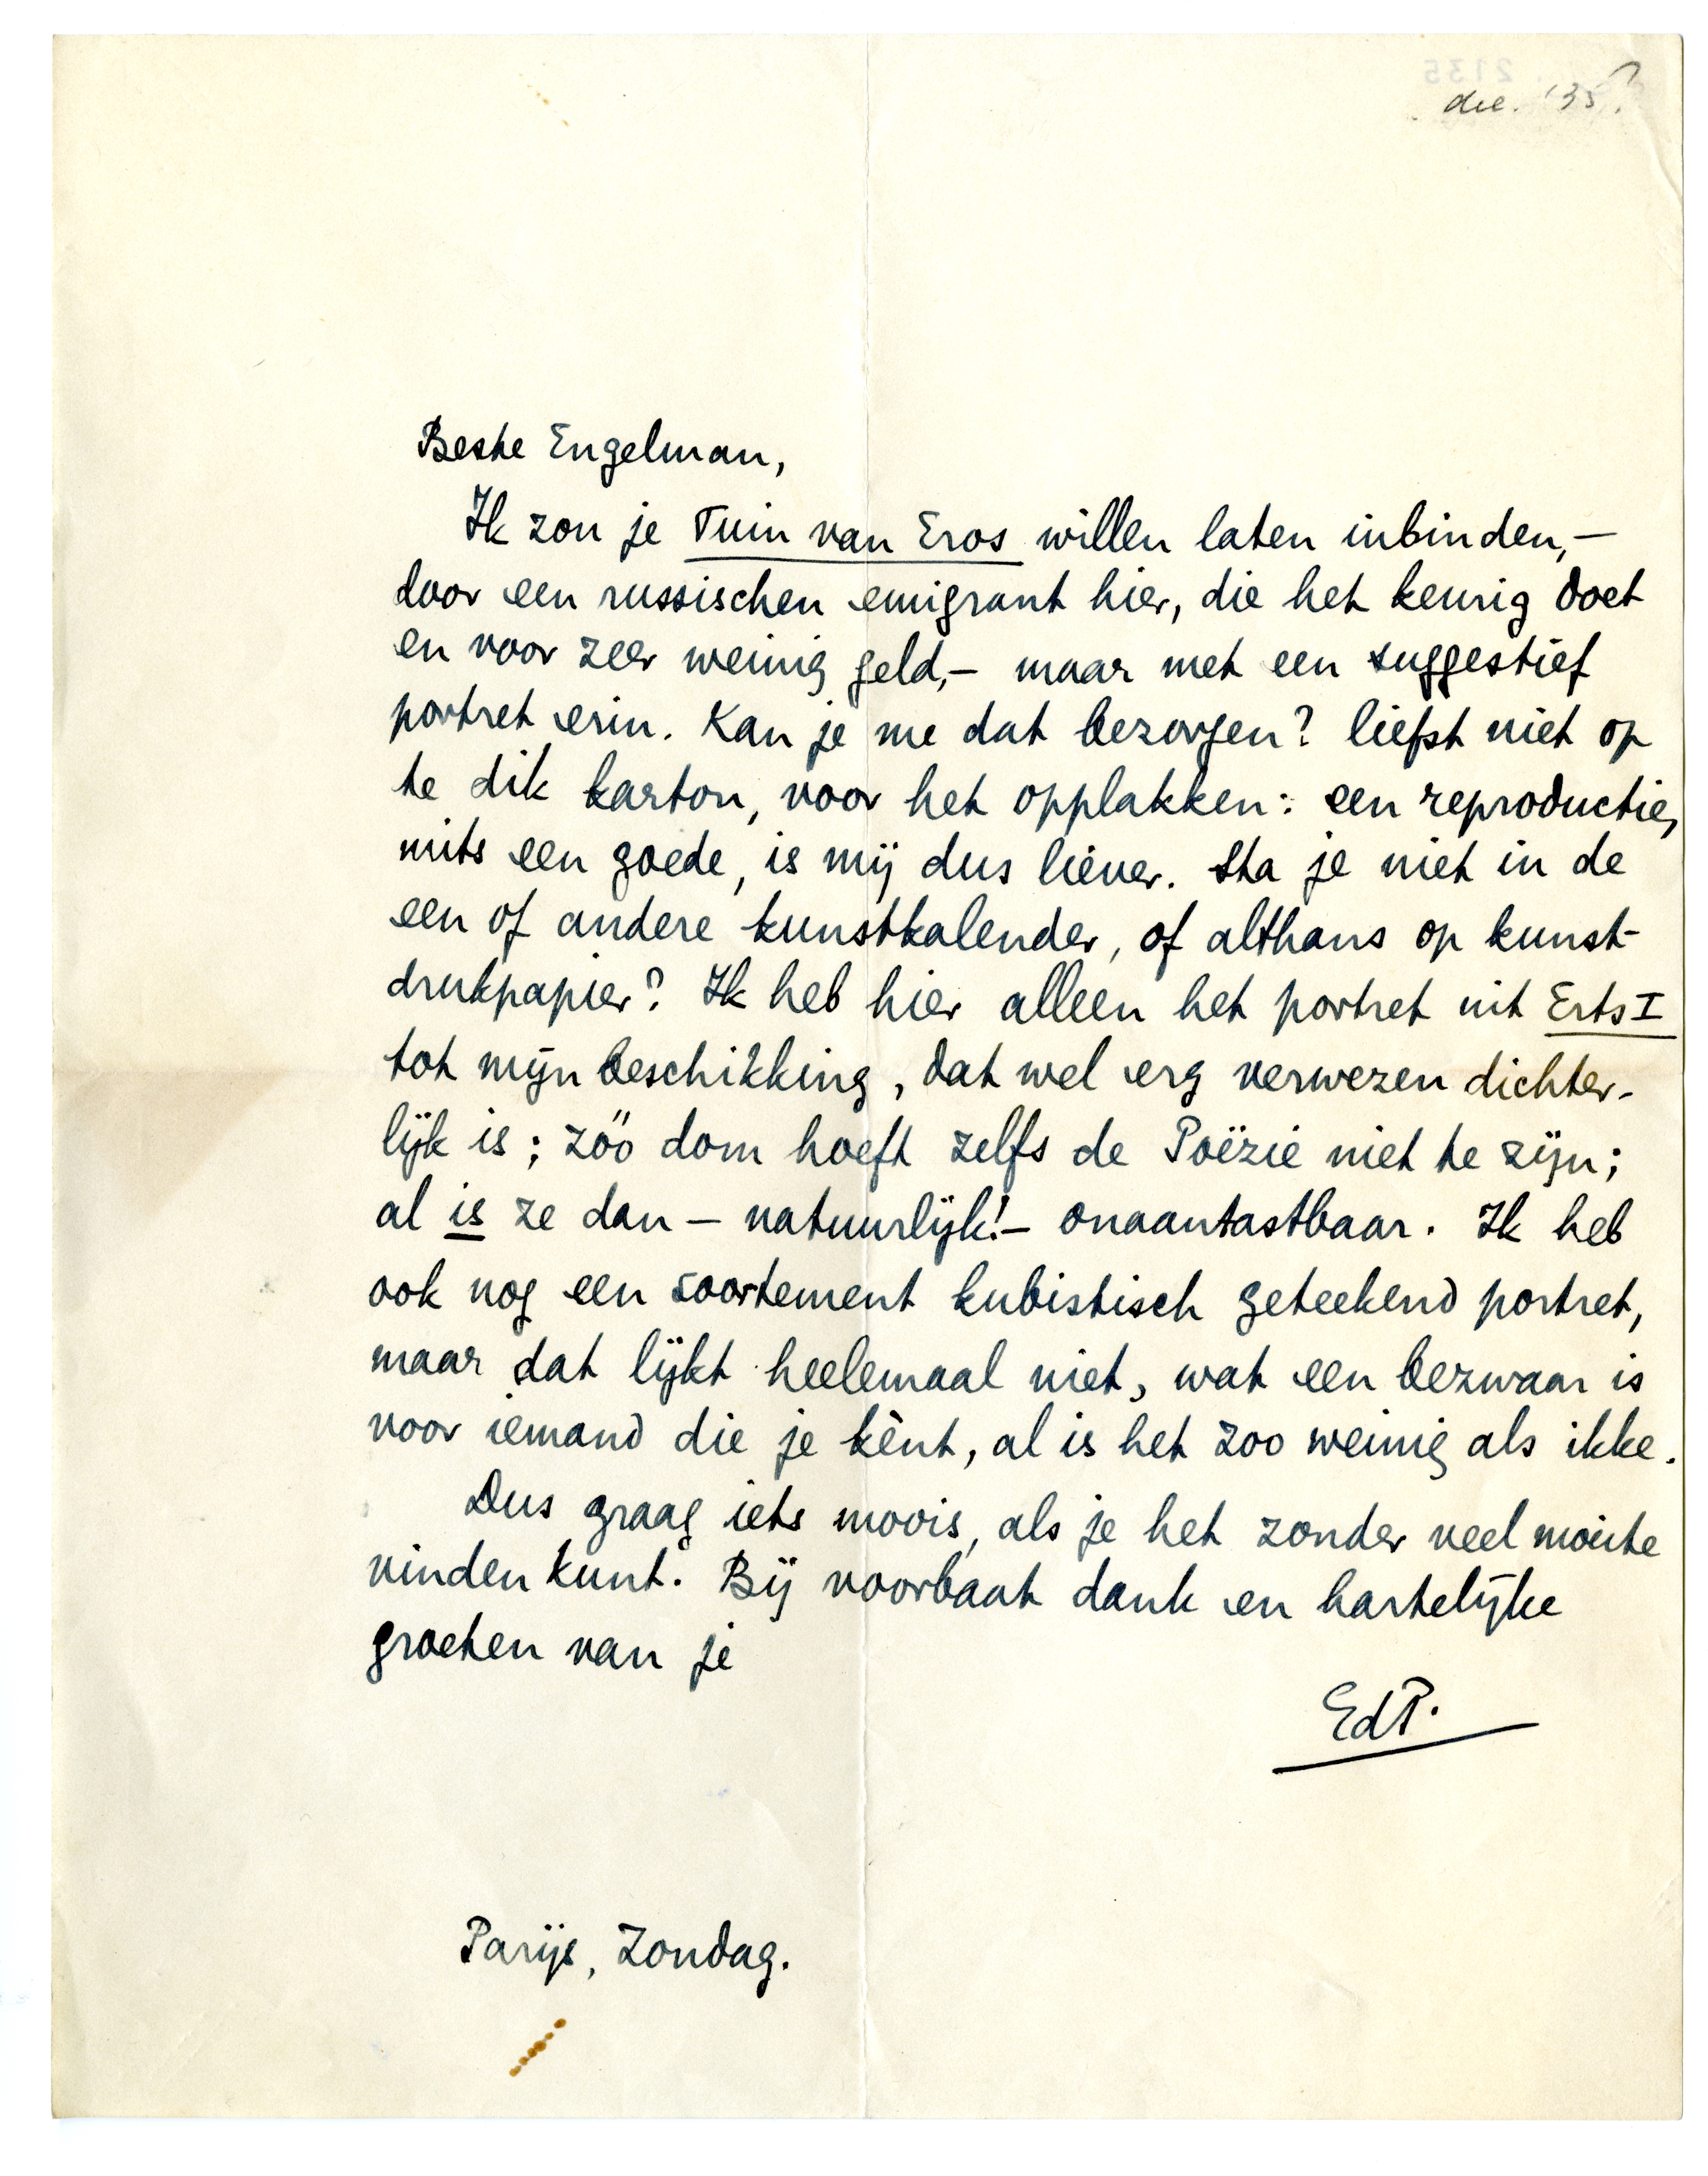 2135
dec. '35?
Beste Engelman,
Ik zou je Tuin van Eros willen laten inbinden,—
door een russischen emigrant hier, die het keurig doet
en voor zeer weinig geld,— maar met een suggestief
portret erin. Kan je me dat bezorgen? liefst niet op
te dik karton, voor het opplakken: een reproductie,
mits een goede, is mij dus liever. Sta je niet in de
een of andere kunstkalender, of althans op kunst-
drukpapier? Ik heb hier alleen het portret uit Erts I
tot mijn beschikking, dat wel erg verwezen dichter-
lijk is; zóó dom hoeft zelfs de Poëzie niet te zijn;
al is ze dan — natuurlijk!— onaantastbaar. Ik heb
ook nog een soortement kubistisch geteekend portret,
maar dat lijkt heelemaal niet, wat een bezwaar is
voor iemand die je kènt, al is het zoo weinig als ikke.
Dus graag iets moois, als je het zonder veel moeite
vinden kunt. Bij voorbaat dank en hartelijke
groeten van je
EdP.
Parijs, Zondag.